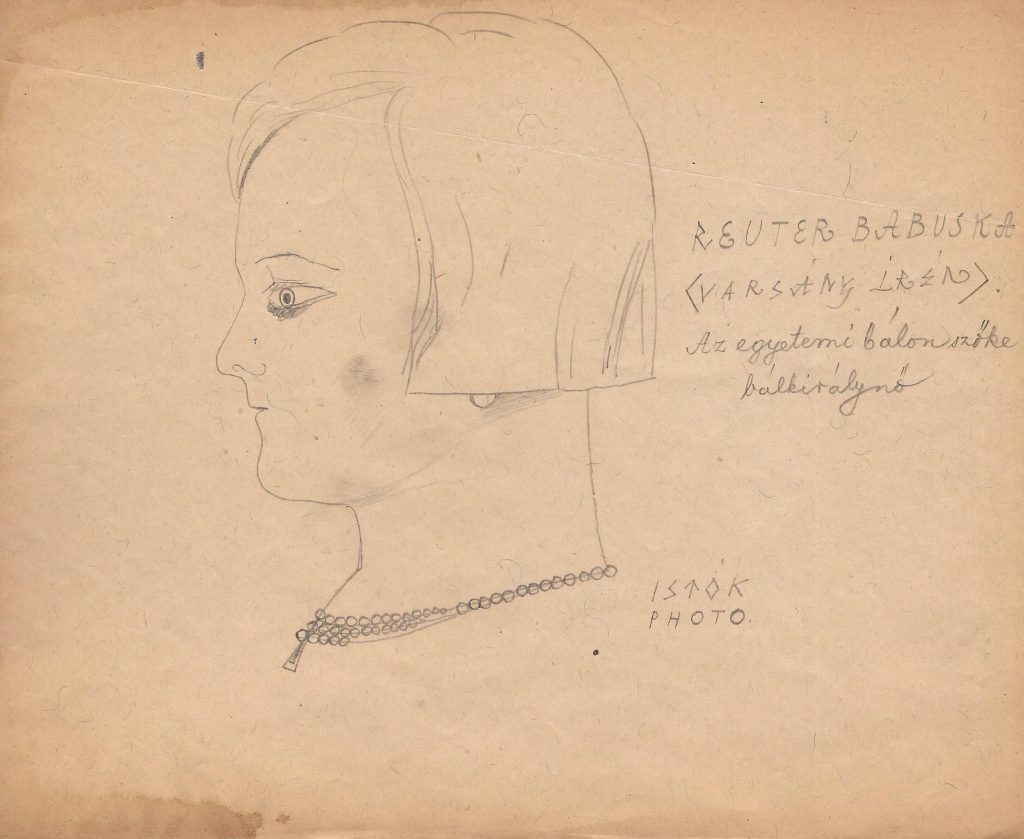 REUTER BABUSKA
(VARSÁNY IRÉN).
Az egyetemi bálon szőke
bálkirálynő
ISTÓK
PHOTO.